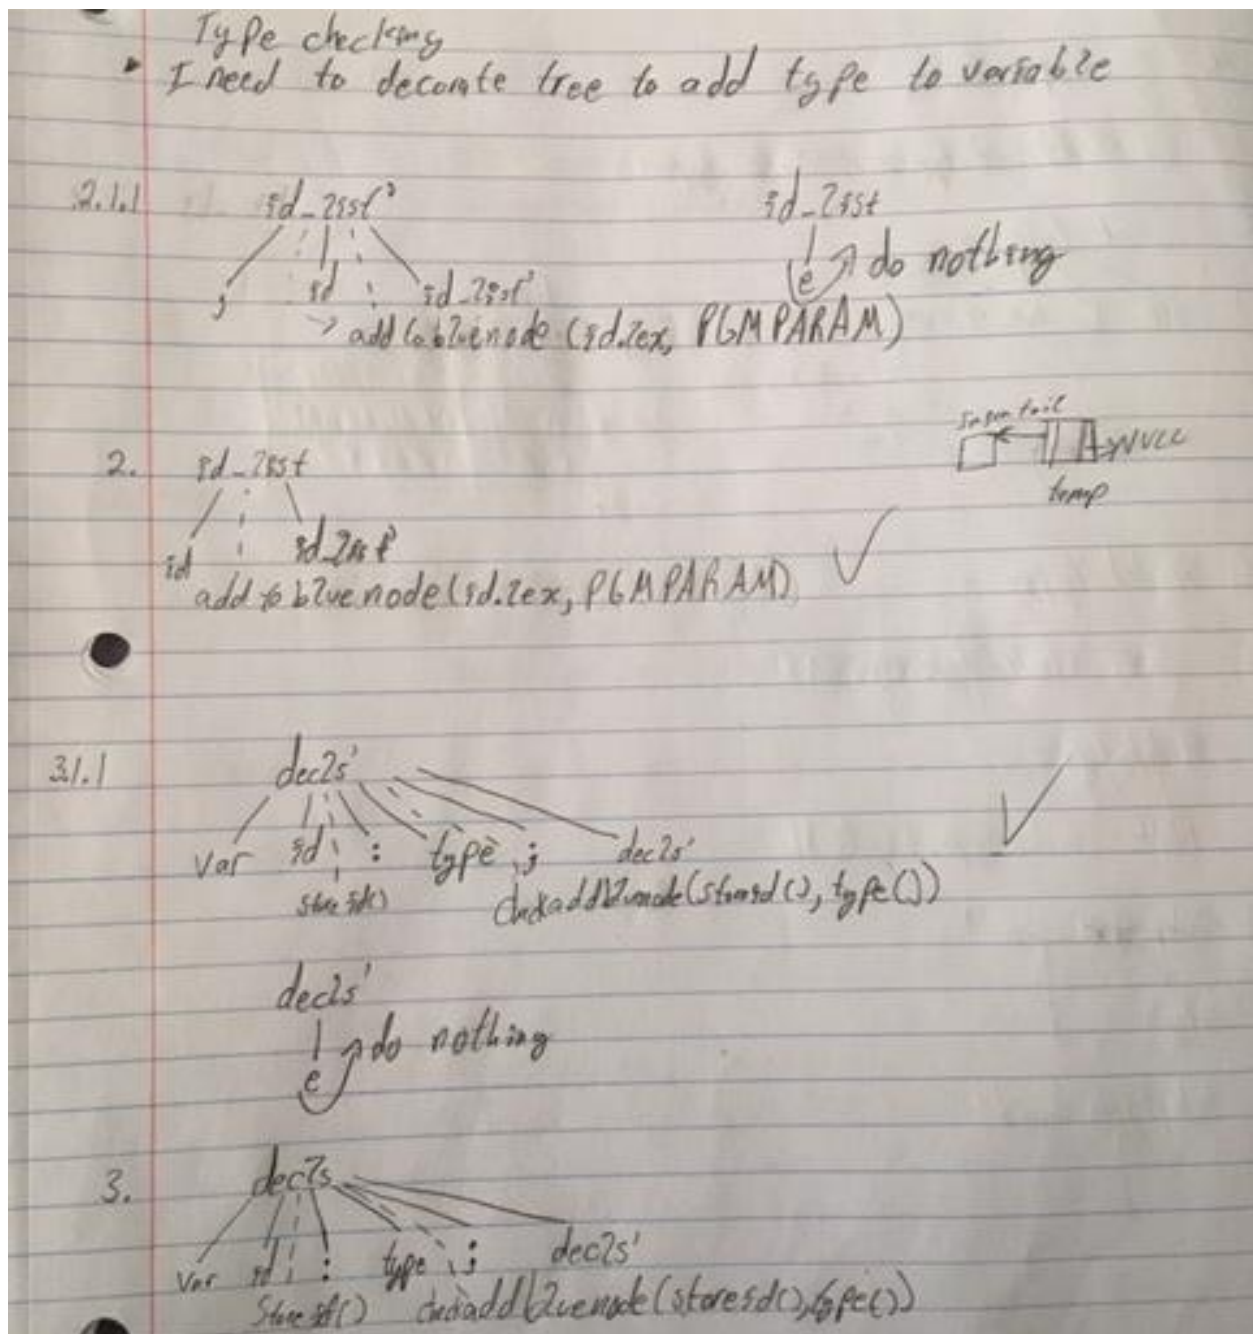 Type checking
I need to decorate tree to add type to variable
2.1.1 id_list' id_list
, id id_list' e do nothing
add to bluenode (id.lex, PGMPARAM)
2. id_list temp NULL
id id_list'
add to bluenode (id.lex, PGMPARAM)
3.1.1 decls'
var id : type ; decls'
store id() checkaddbluenode(storeid(), type())
decls'
do nothing
e
3. decls
var id : type ; decls'
Store id() checkaddbluenode(storeid(), type())